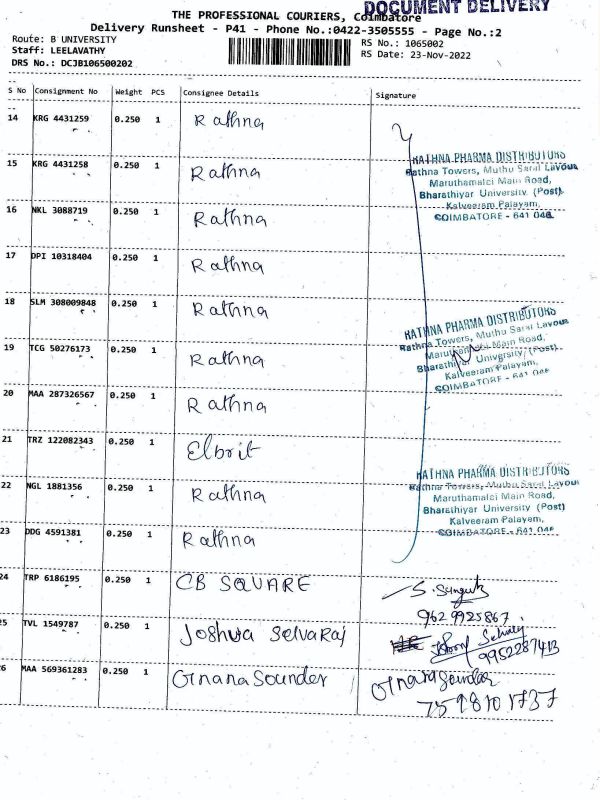 DOCUMENT DELIVERY
THE PROFESSIONAL COURIERS, Coimbatore
Delivery Runsheet - P41 - Phone No.:0422-3505555 - Page No.:2
Route: B UNIVERSITY
RS No.: 1065002
Staff: LEELAVATHY
RS Date: 23-Nov-2022
DRS No.: DCJB106500202
S No Consignment No Weight PCS Consignee Details Signature
14 KRG 4431259 0.250 1 Rathna
RATHNA PHARMA DISTRIBUTORS
15 KRG 4431258 0.250 1 Rathna
Rathna Towers, Muthu Saral Layout
Maruthamalai Main Road,
Bharathiyar University (Post)
Kalveeram Palayam,
COIMBATORE - 641 046
16 NKL 3088719 0.250 1 Rathna
17 DPI 10318404 0.250 1 Rathna
18 SLM 308009848 0.250 1 Rathna
RATHNA PHARMA DISTRIBUTORS
Rathna Towers, Muthu Saral Layout
Maruthamalai Main Road,
Bharathiyar University (Post)
Kalveeram Palayam,
COIMBATORE - 641 046
19 TCG 50276173 0.250 1 Rathna
20 MAA 287326567 0.250 1 Rathna
21 TRZ 122082343 0.250 1 Elbrit
RATHNA PHARMA DISTRIBUTORS
Rathna Towers, Muthu Saral Layout
Maruthamalai Main Road,
Bharathiyar University (Post)
Kalveeram Palayam,
COIMBATORE - 641 046
22 NGL 1881356 0.250 1 Rathna
23 DDG 4591381 0.250 1 Rathna
24 TRP 6186195 0.250 1 CB SQUARE
9629925867
25 TVL 1549787 0.250 1 Joshua Selvaraj
9952287413
26 MAA 569361283 0.250 1 Gnana Sounder
Gnana Sounder
7598101737